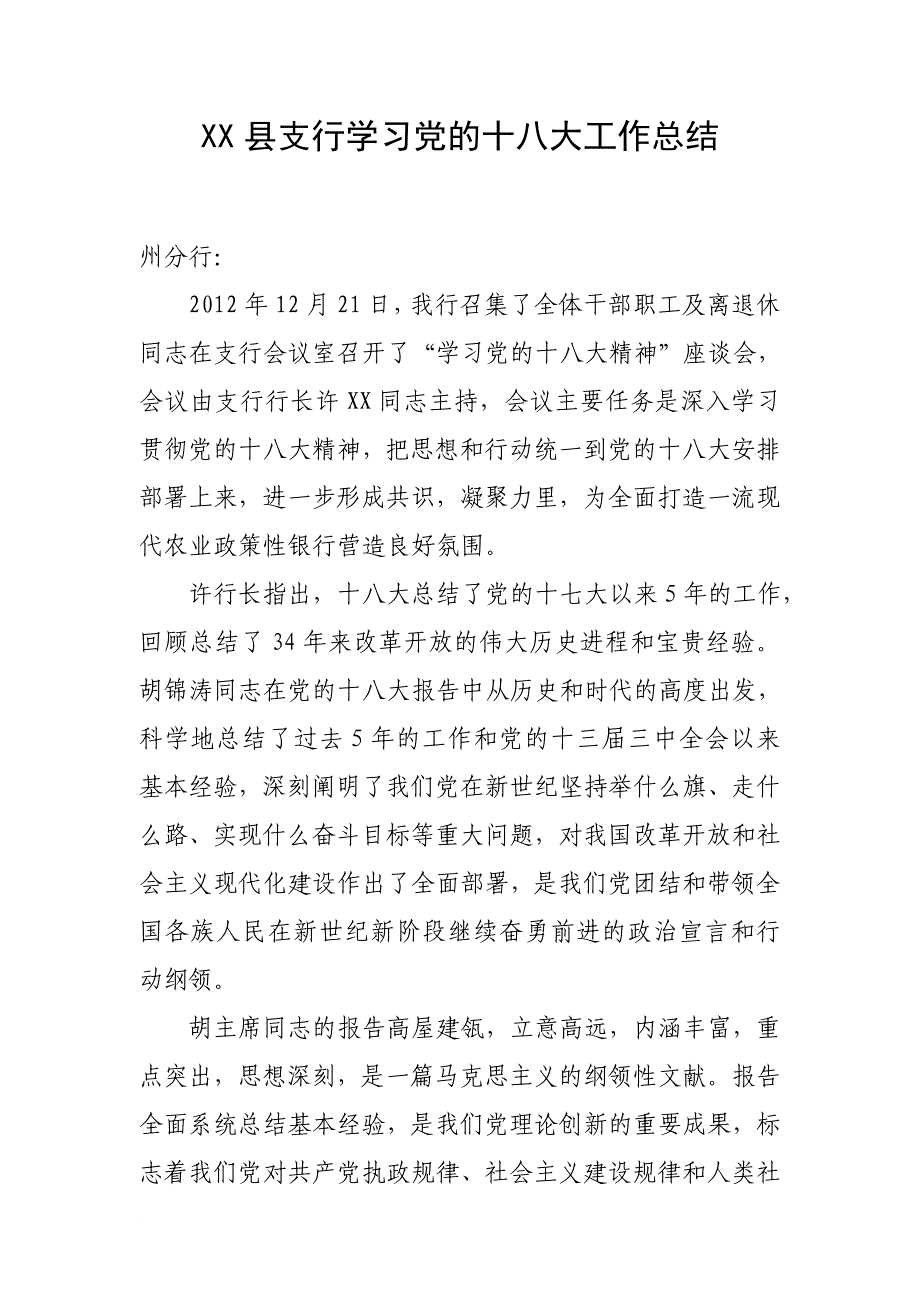 XX 县支行学习党的十八大工作总结
州分行：
2012 年 12 月 21 日，我行召集了全体干部职工及离退休
同志在支行会议室召开了“学习党的十八大精神”座谈会，
会议由支行行长许 XX 同志主持，会议主要任务是深入学习
贯彻党的十八大精神，把思想和行动统一到党的十八大安排
部署上来，进一步形成共识，凝聚力里，为全面打造一流现
代农业政策性银行营造良好氛围。
许行长指出，十八大总结了党的十七大以来 5 年的工作，
回顾总结了 34 年来改革开放的伟大历史进程和宝贵经验。
胡锦涛同志在党的十八大报告中从历史和时代的高度出发，
科学地总结了过去 5 年的工作和党的十三届三中全会以来
基本经验，深刻阐明了我们党在新世纪坚持举什么旗、走什
么路、实现什么奋斗目标等重大问题，对我国改革开放和社
会主义现代化建设作出了全面部署，是我们党团结和带领全
国各族人民在新世纪新阶段继续奋勇前进的政治宣言和行
动纲领。
胡主席同志的报告高屋建瓴，立意高远，内涵丰富，重
点突出，思想深刻，是一篇马克思主义的纲领性文献。报告
全面系统总结基本经验，是我们党理论创新的重要成果，标
志着我们党对共产党执政规律、社会主义建设规律和人类社